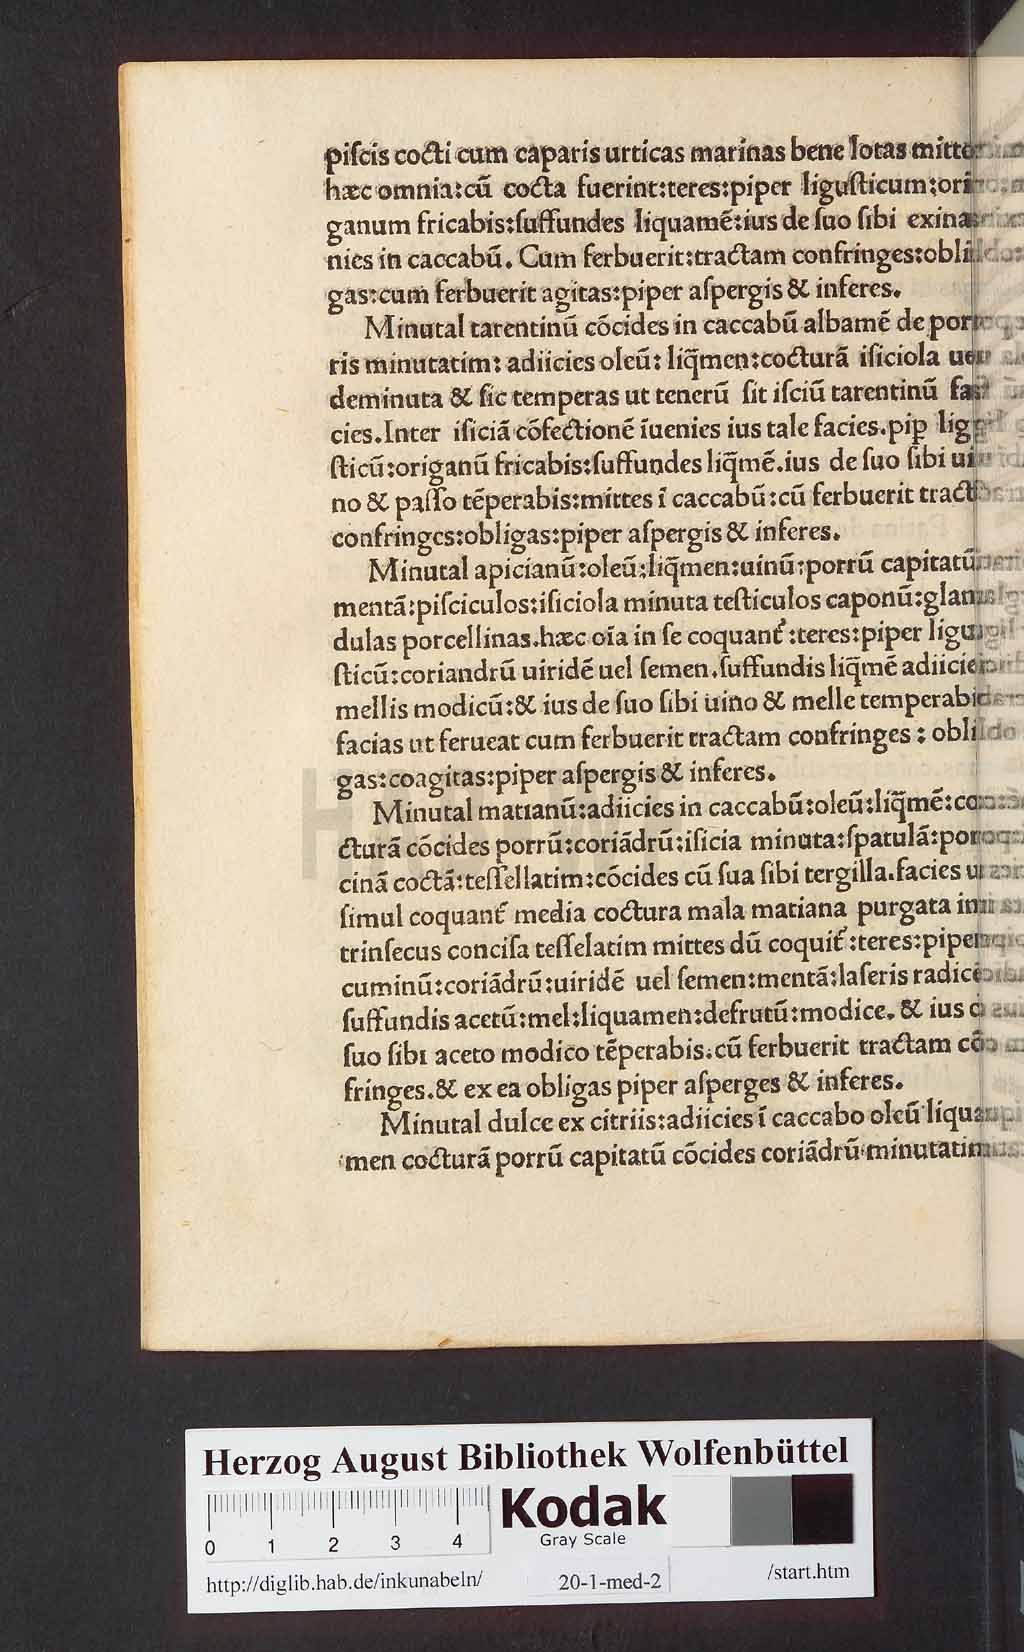 piſcis cocti cum caparis urticas marinas bene lotas mitte
hæc omnia:cū cocta fuerint:teres:piper liguſticum:ori
ganum fricabis:ſuffundes liquamē:ius de ſuo ſibi exina
nies in caccabū. Cum ferbuerit:tractam confringes:obli
gas:cum ferbuerit agitas:piper aſpergis & inferes.
Minutal tarentinū cōcides in caccabū albamē de por
ris minutatim: adiicies oleū: liq̄men:cocturā iſiciola
deminuta & ſic temperas ut tenerū ſit iſciū tarentinū fa
cies.Inter iſiciā cōfectionē īuenies ius tale facies.piꝑ lig
ſticū:origanū fricabis:ſuffundes liq̄mē.ius de ſuo ſibi ui
no & paſſo tēperabis:mittes ī caccabū:cū ferbuerit tract
confringes:obligas:piper aſpergis & inferes.
Minutal apicianū:oleū:liq̄men:uinū:porrū capitatū
mentā:piſciculos:iſiciola minuta teſticulos caponū:glan
dulas porcellinas.hæc oīa in ſe coquant᷑:teres:piper ligu
ſticū:coriandrū uiridē uel ſemen.ſuffundis liq̄mē adiicie
mellis modicū:& ius de ſuo ſibi uino & melle temperabi
facias ut ferueat cum ferbuerit tractam confringes : obli
gas:coagitas:piper aſpergis & inferes.
Minutal matianū:adiicies in caccabū:oleū:liq̄mē:co
cturā cōcides porrū:coriādrū:iſicia minuta:ſpatulā:por
cinā coctā:teſſellatim:cōcides cū ſua ſibi tergilla.facies u
ſimul coquant᷑ media coctura mala matiana purgata in
trinſecus conciſa teſſelatim mittes dū coquit᷑:teres:piper
cuminū:coriādrū:uiridē uel ſemen:mentā:laſeris radicē
ſuffundis acetū:mel:liquamen:defrutū:modice. & ius
ſuo ſibi aceto modico tēperabis.cū ferbuerit tractam cō
fringes.& ex ea obligas piper aſperges & inferes.
Minutal dulce ex citriis:adiicies ī caccabo oleū liqua
men cocturā porrū capitatū cōcides coriādrū minutatim
Herzog August Bibliothek Wolfenbüttel
Kodak
Gray Scale
0 1 2 3 4
http://diglib.hab.de/inkunabeln/ 20-1-med-2 /start.htm